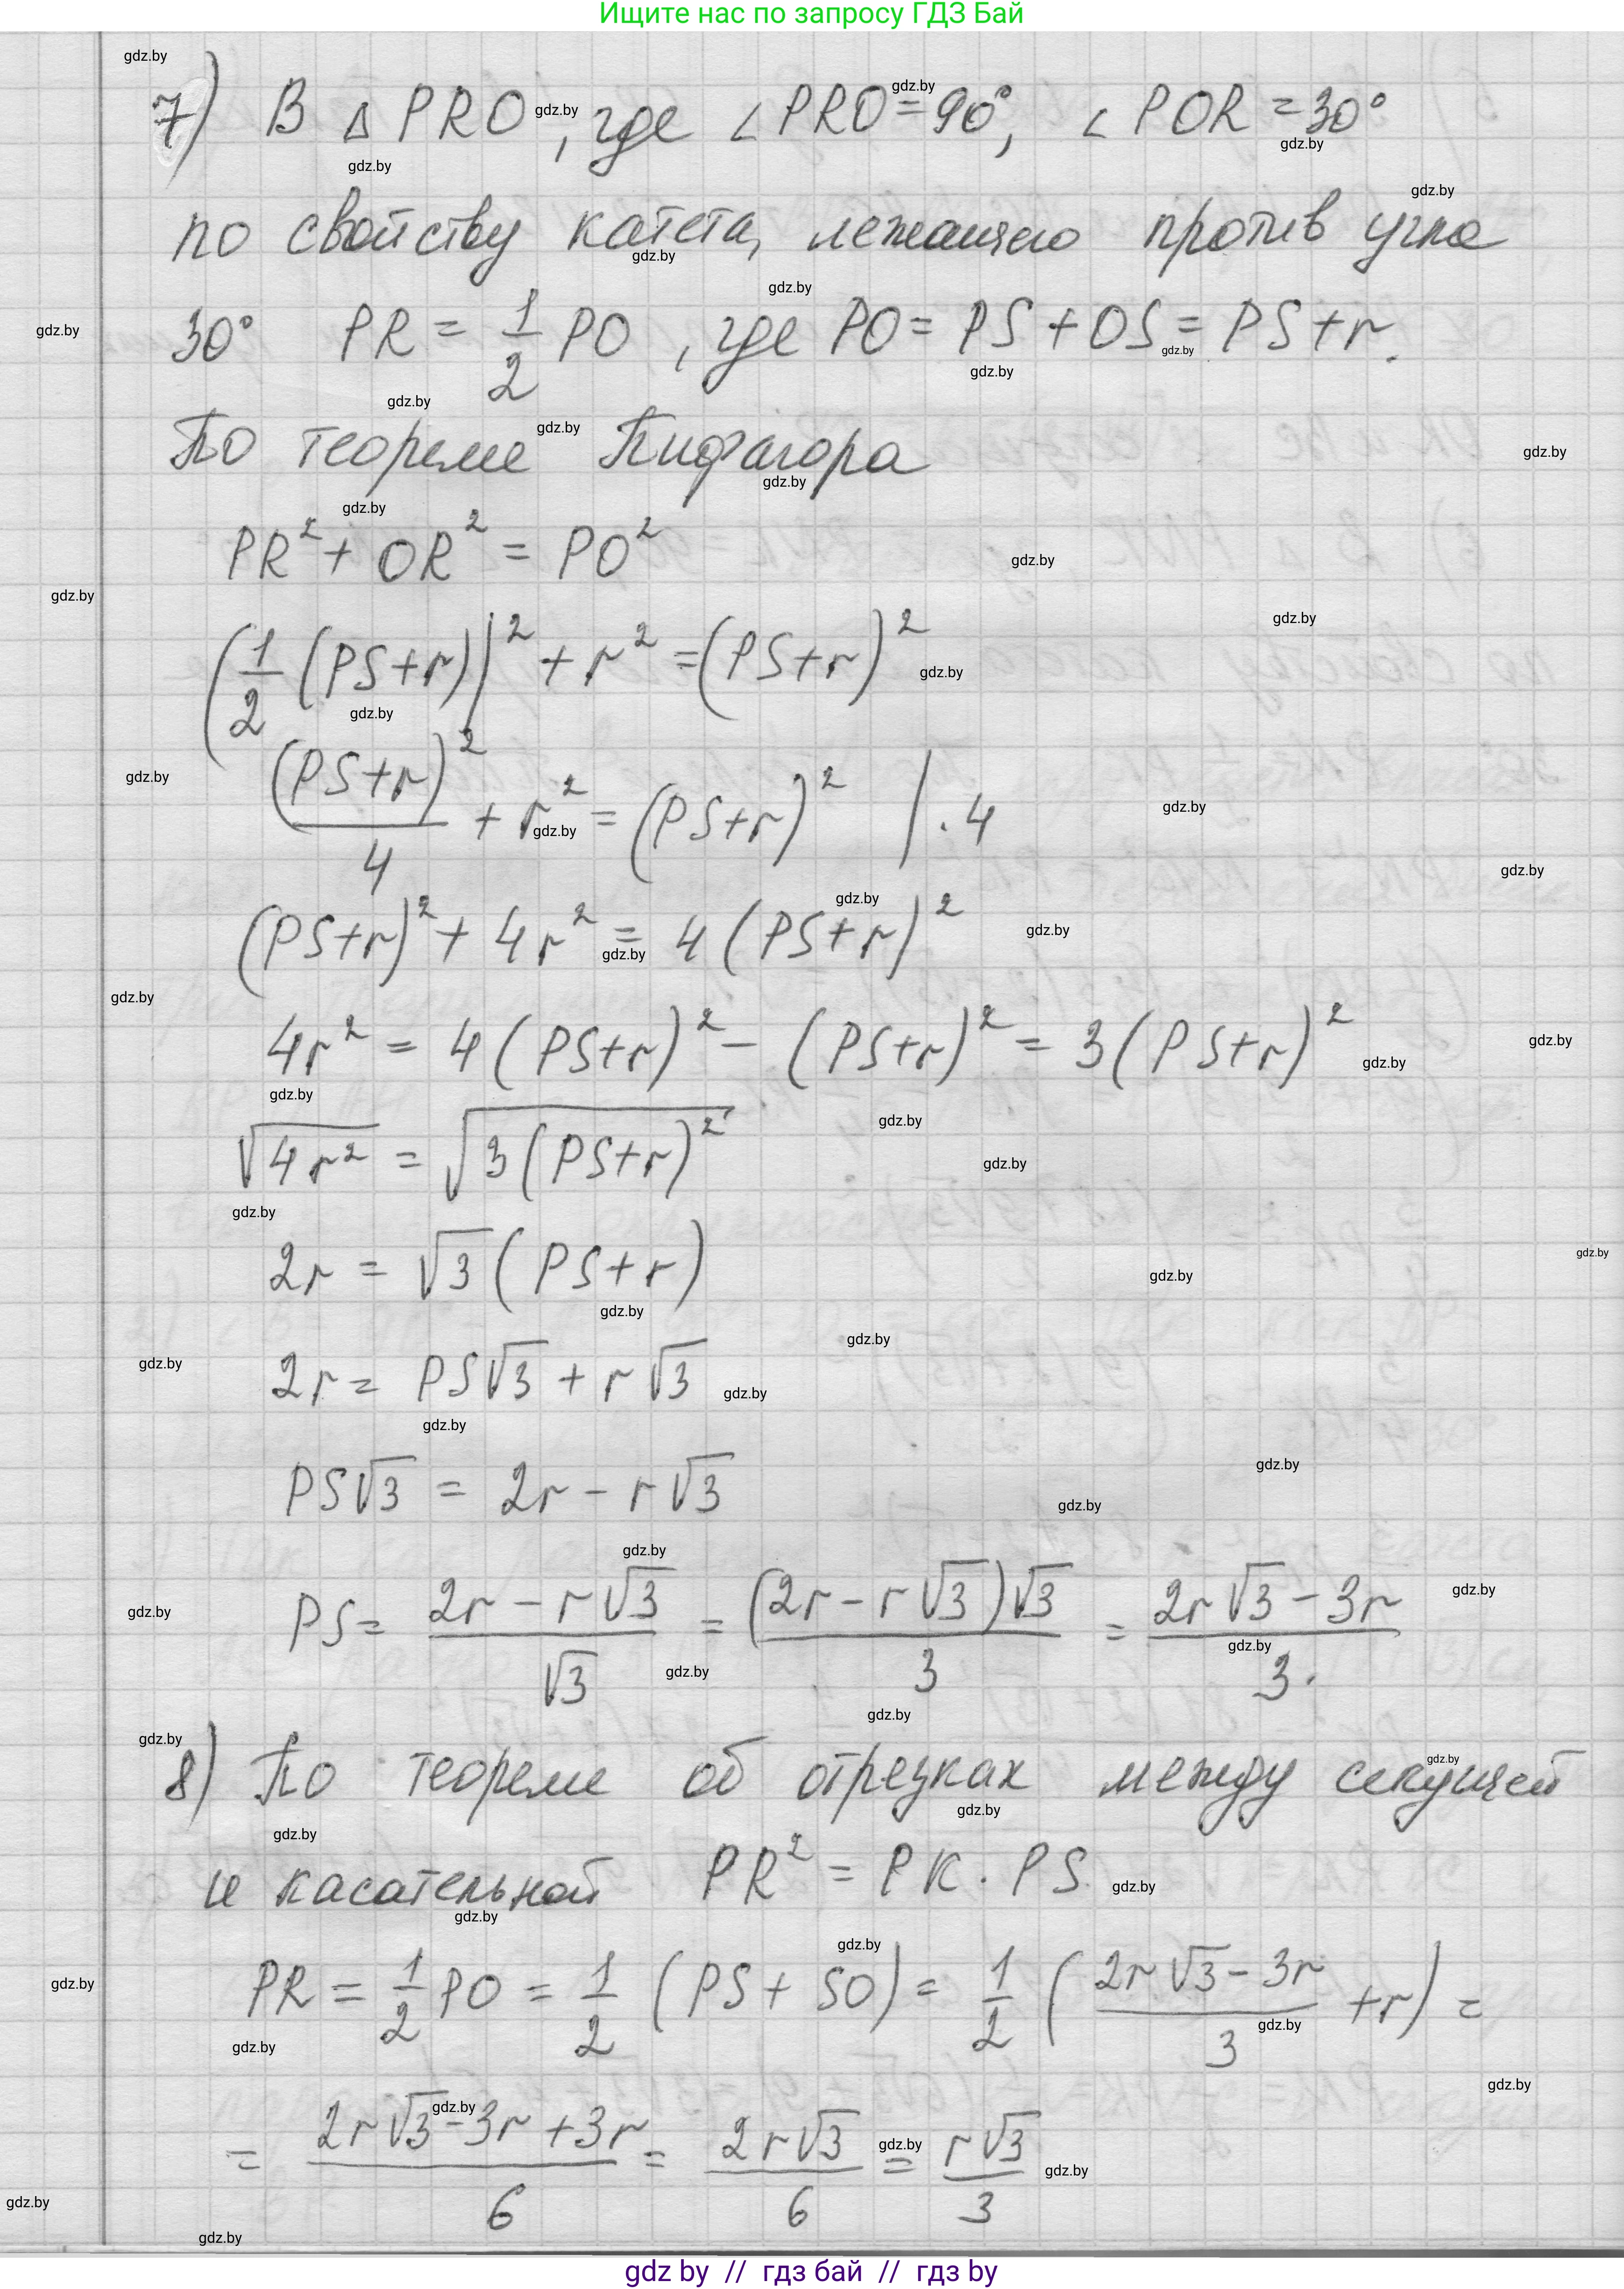 Ищите нас по запросу ГДЗ Бай
7) В △ PRO, где ∠PRO=90°, ∠POR=30°
по свойству катета, лежащего против угла
30° PR = 1/2 PO, где PO = PS + OS = PS + r.
По теореме Пифагора
PR² + OR² = PO²
(1/2 (PS+r))² + r² = (PS+r)²
(PS+r)²/4 + r² = (PS+r)² | · 4
(PS+r)² + 4r² = 4(PS+r)²
4r² = 4(PS+r)² − (PS+r)² = 3(PS+r)²
√(4r²) = √(3(PS+r)²)
2r = √3(PS+r)
2r = PS√3 + r√3
PS√3 = 2r − r√3
PS = (2r − r√3)/√3 = ((2r − r√3)√3)/3 = (2r√3 − 3r)/3.
8) По теореме об отрезках между секущей
и касательной PR² = PK · PS
PR = 1/2 PO = 1/2 (PS + SO) = 1/2 ((2r√3 − 3r)/3 + r) =
= (2r√3 − 3r + 3r)/6 = 2r√3/6 = r√3/3
gdz by // гдз бай // гдз by